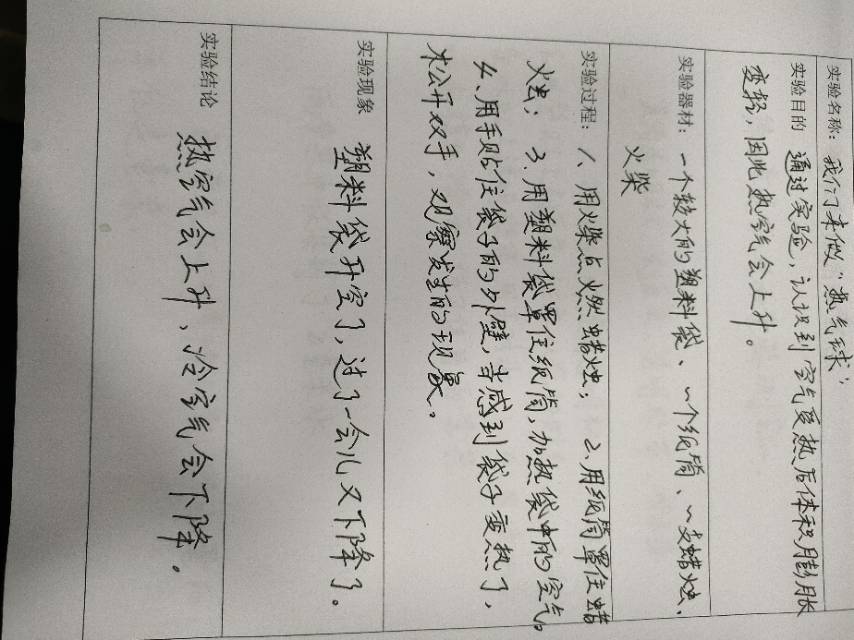 实验名称：我们来做"热气球"
实验目的 通过实验，认识到空气受热后体积膨胀
变轻，因此热空气会上升。
实验器材：一个较大的塑料袋、一个纸筒、一支蜡烛、
火柴
实验过程：1、用火柴点燃蜡烛； 2、用纸筒罩住蜡
烛； 3、用塑料袋罩住纸筒，加热袋中的空气。
4、用手贴住袋子的外壁，当感到袋子变热了，
松开双手，观察发生的现象。
实验现象 塑料袋升空了，过了一会儿又下降了。
实验结论 热空气会上升、冷空气会下降。